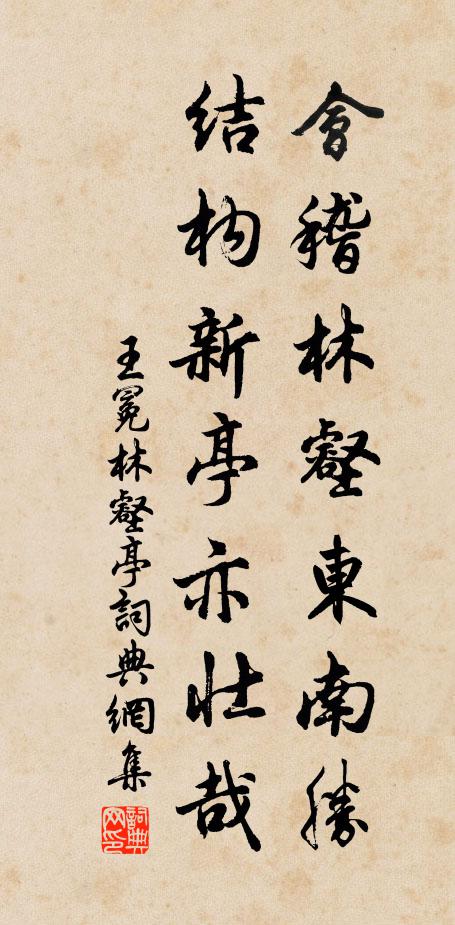 會稽林壑東南勝
結构新亭亦壮哉
王冕林壑亭詞典網集
詞典網印